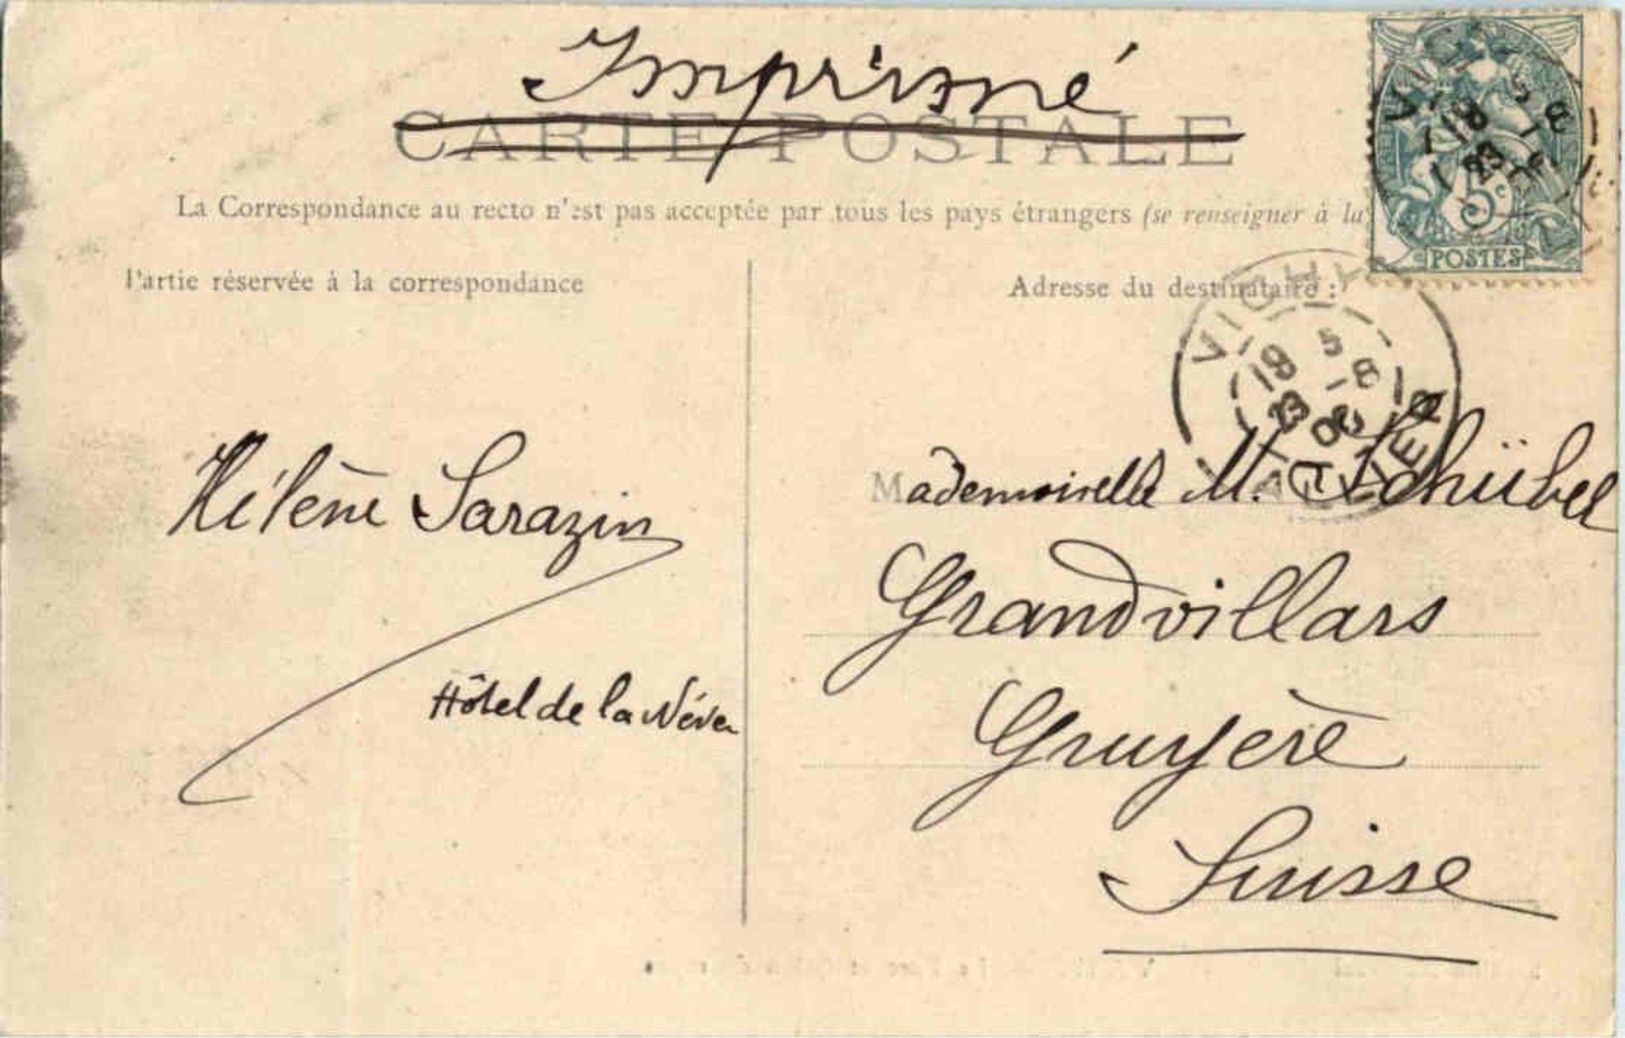 Imprimé
CARTE POSTALE
La Correspondance au recto n'est pas acceptée par tous les pays étrangers (se renseigner à la
Partie réservée à la correspondance
Adresse du destinataire :
5c
POSTES
VICHY
ALLIER
19 5
23 -8
06
Hélène Sarazin
Hôtel de la
Mademoiselle M. Schübel
Grandvillars
Gruyère
Suisse